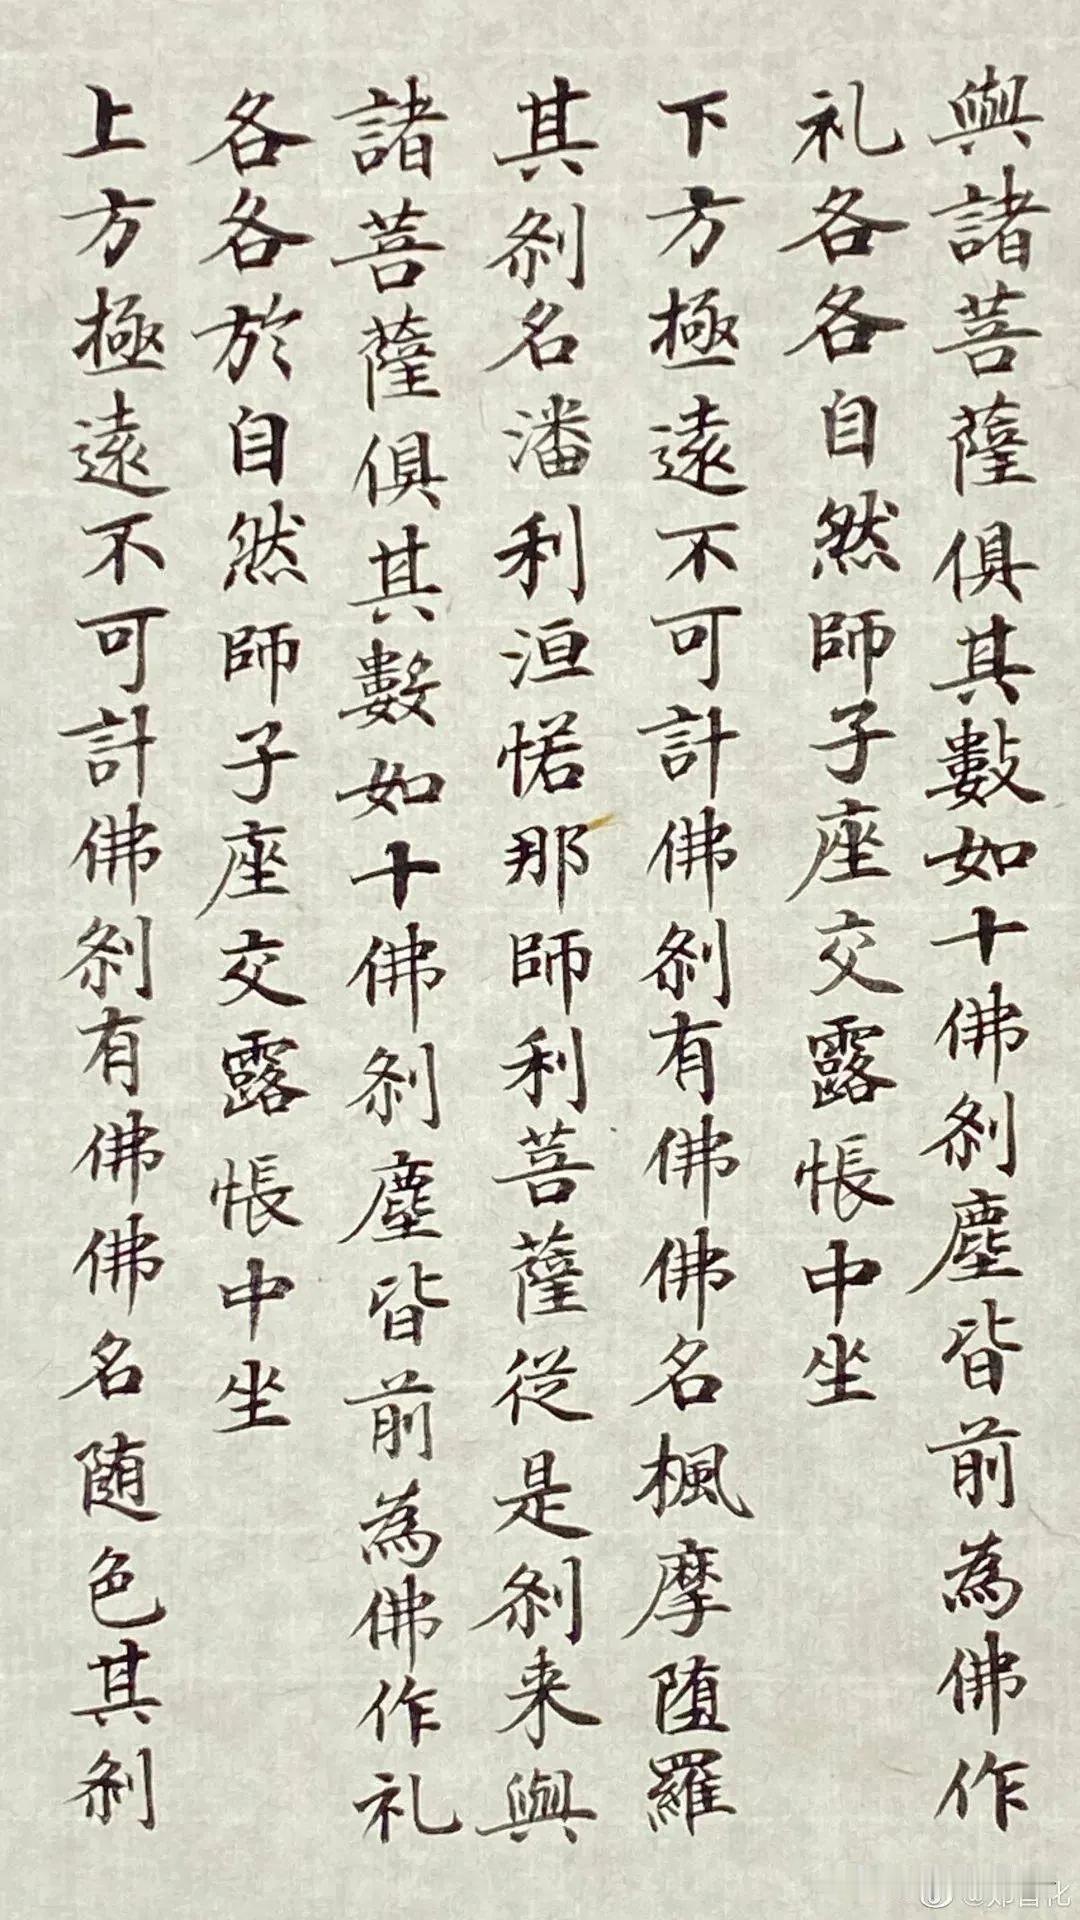 與諸菩薩俱其數如十佛刹塵皆前為佛作
礼各各自然師子座交露帳中坐
下方極遠不可計佛刹有佛佛名楓摩堕羅
其刹名潘利洹惹那師利菩薩從是刹来與
諸菩薩俱其數如十佛刹塵皆前為佛作礼
各各於自然師子座交露帳中坐
上方極遠不可計佛刹有佛佛名随色其刹